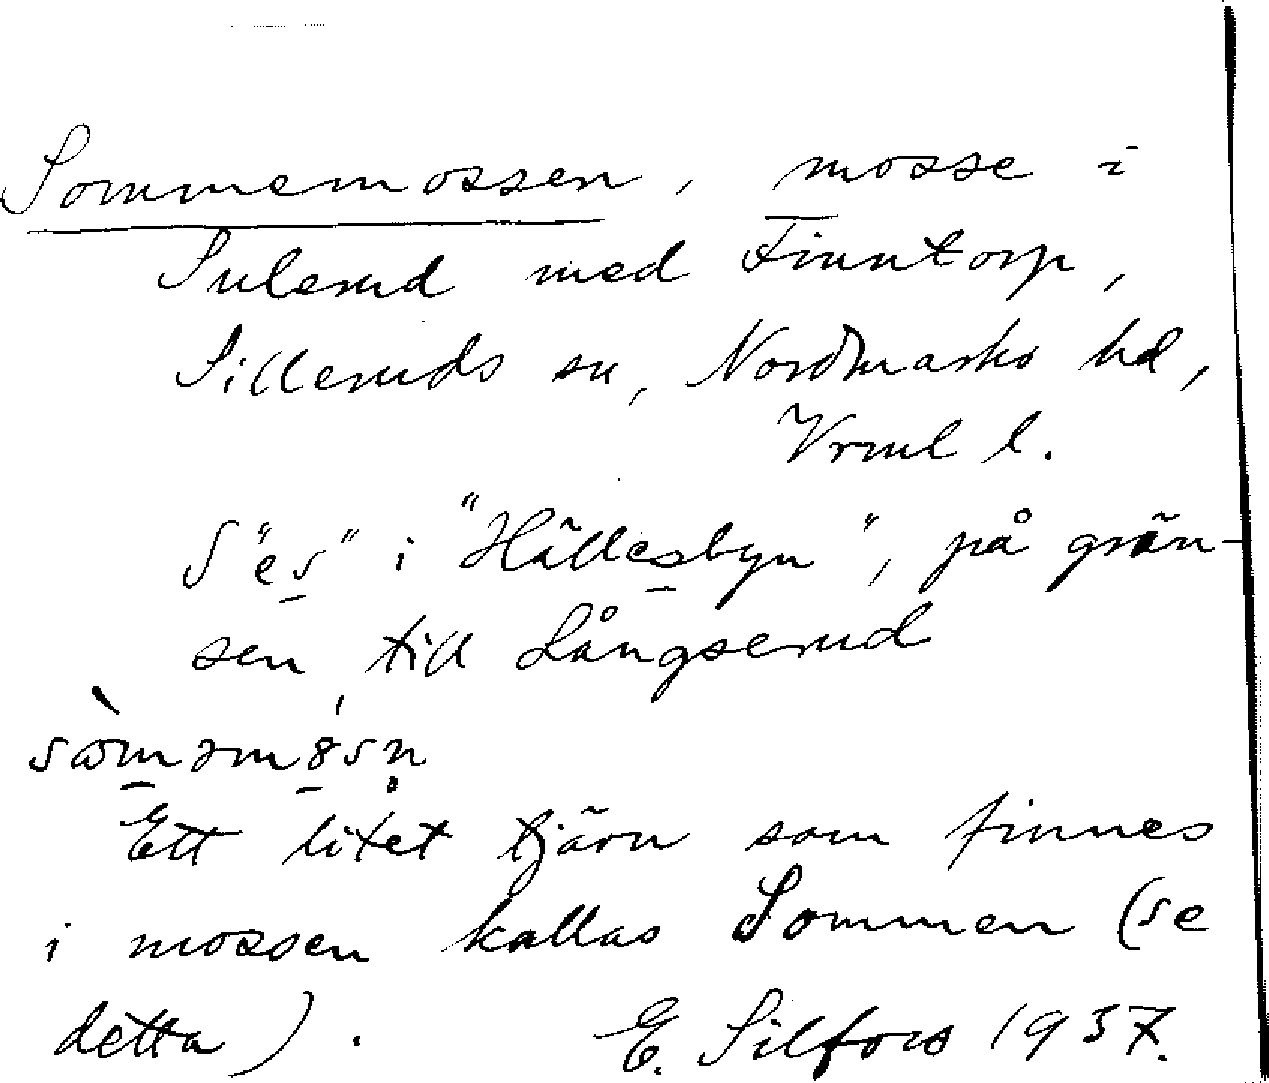 Sommemossen, mosse i
Sulerud med Finntorp,
Silleruds sn, Nordmarks hd,
Vrml l.
S "es" i "Hällesbyn", på grän-
sen till Långserud
Ett litet tjärn som finnes
i mossen kallas Sommen (se
detta). E. Silfors 1937.